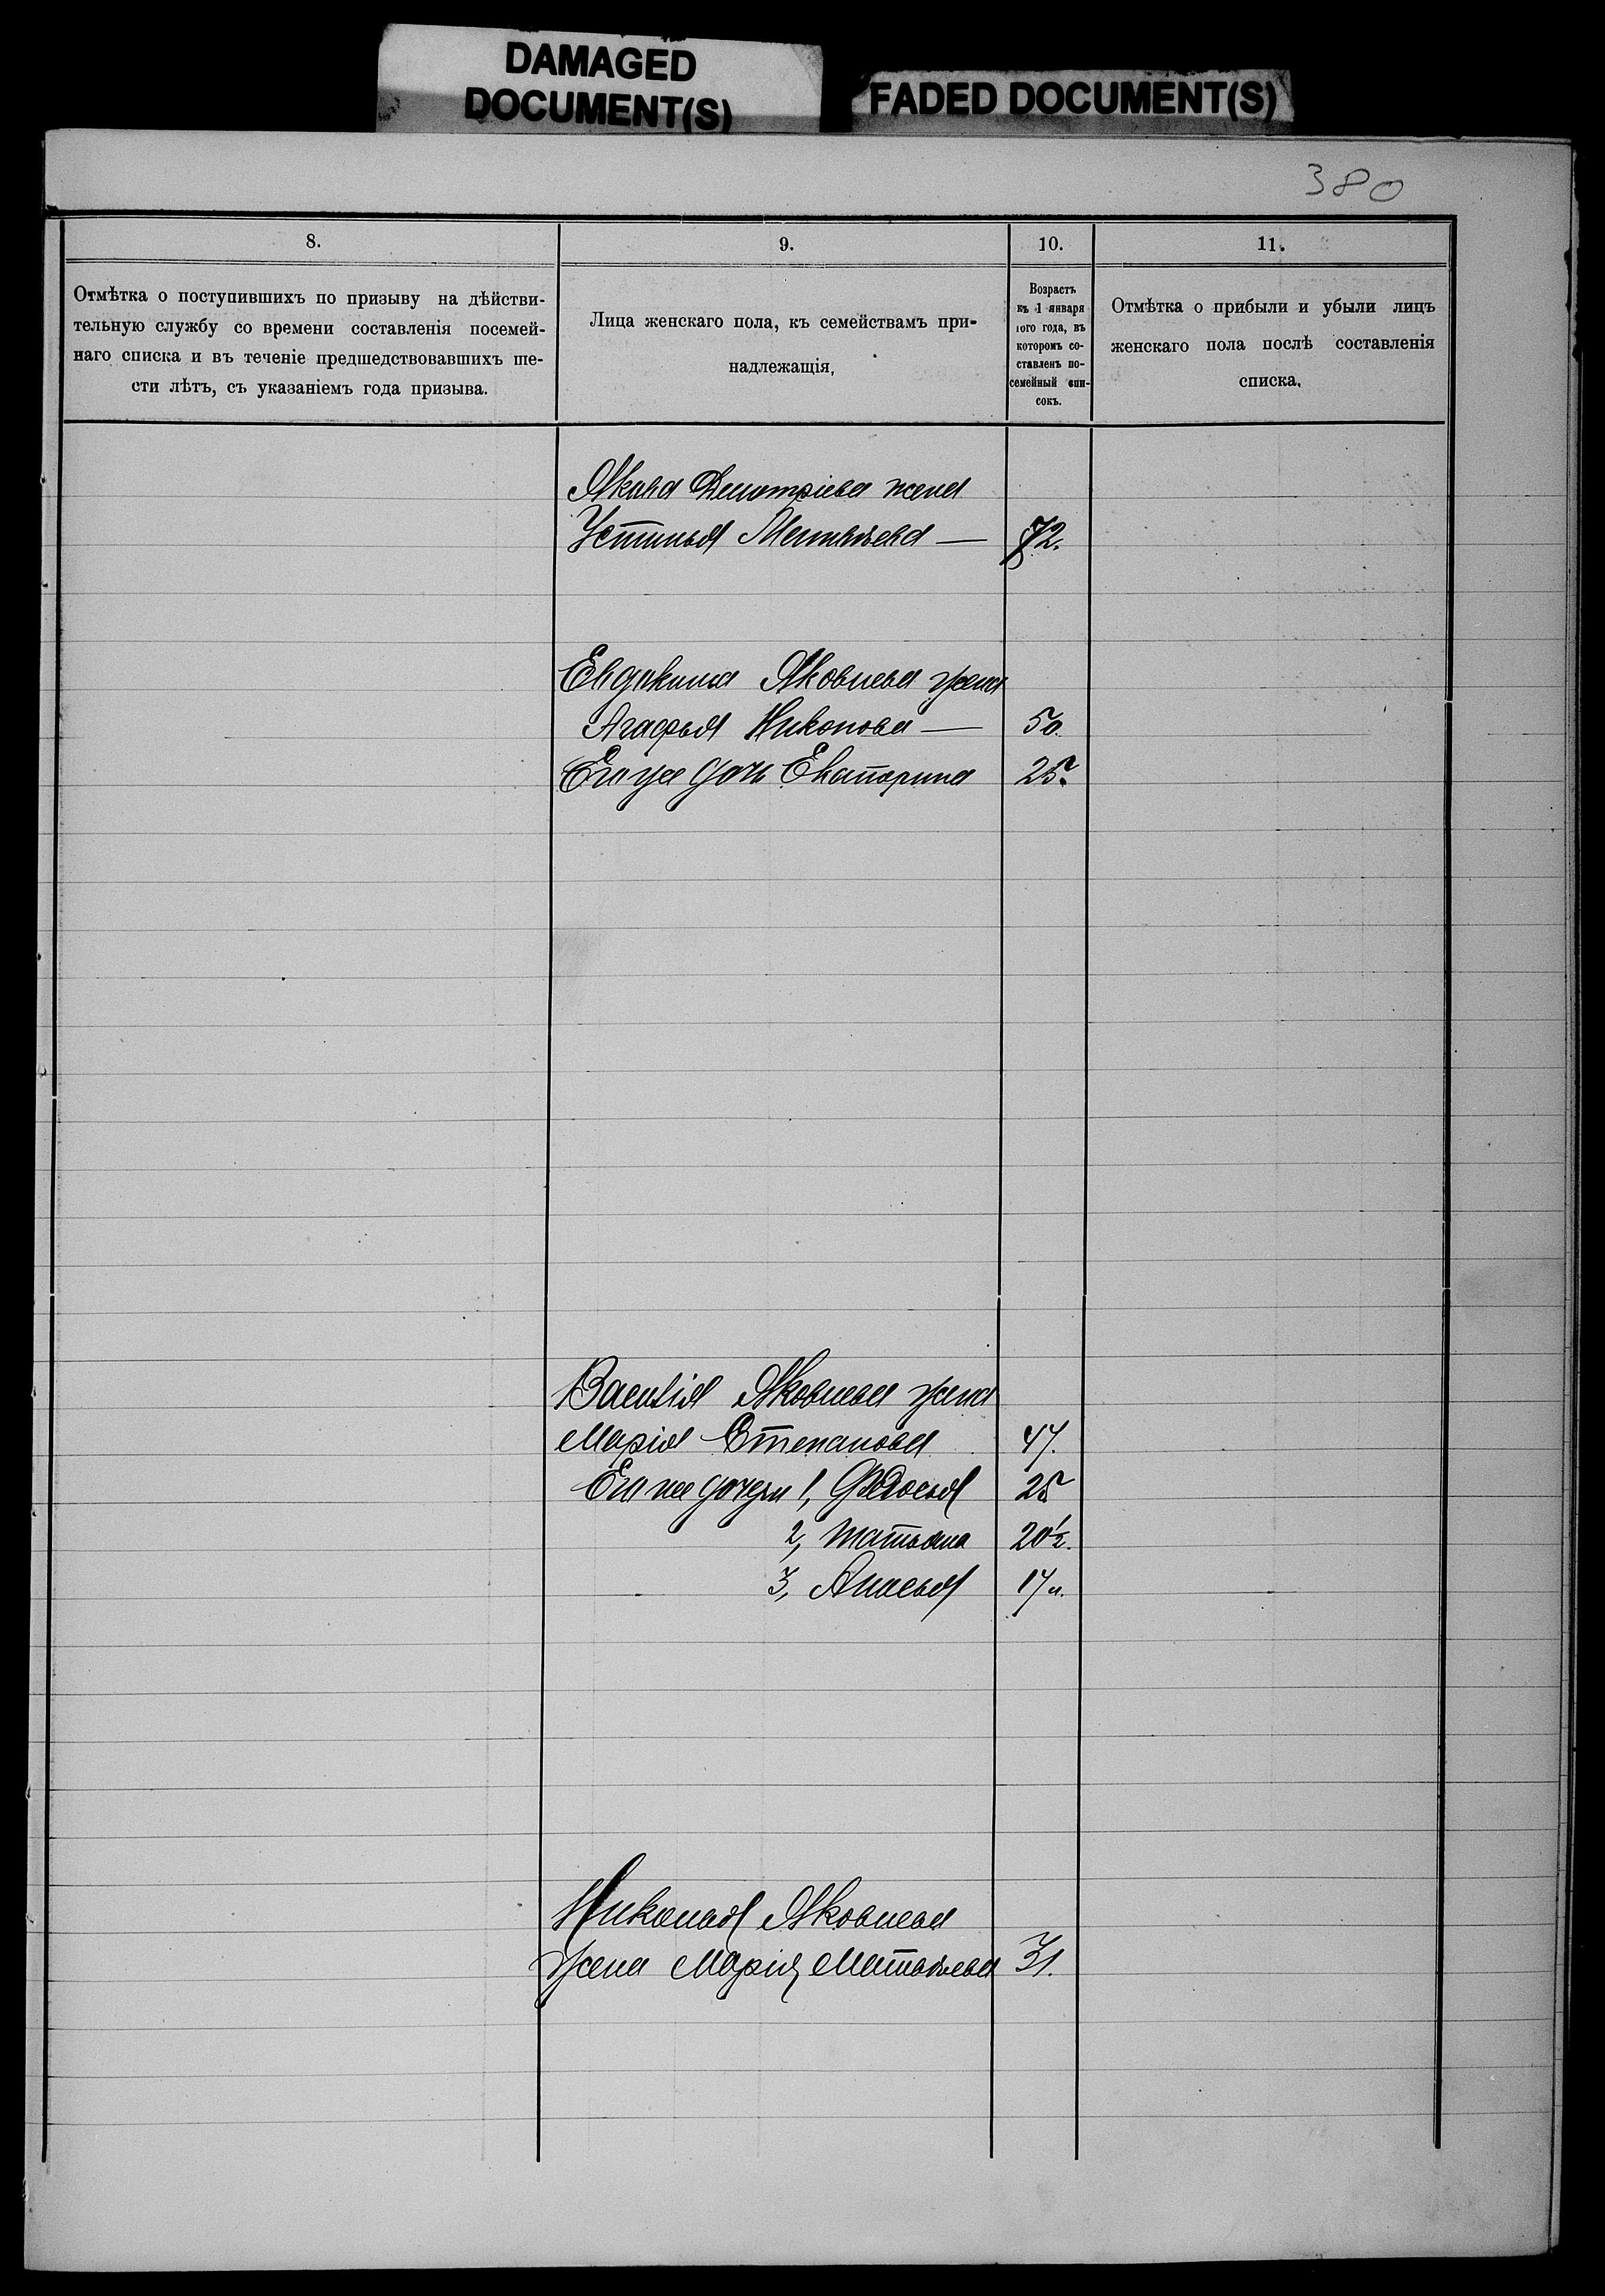 DAMAGED
DOCUMENT(S)
FADED DOCUMENT(S)
380
8.
9.
10.
11.
Отмѣтка о поступившихъ по призыву на дѣйстви-
тельную службу со времени составленія посемей-
наго списка и въ теченіе предшедствовавшихъ ше-
сти лѣтъ, съ указаніемъ года призыва.
Лица женскаго пола, къ семействамъ при-
надлежащія,
Возрастъ
къ 1 января
того года, въ
которомъ со-
ставленъ по-
семейный спи-
сокъ.
Отмѣтка о прибыли и убыли лицъ
женскаго пола послѣ составленія
списка.
Якова Дмитріева жена
Устинья — 72.
Евдокима Яковлева жена
Агафья Никонова — 50
Его же дочь Екатерина 25.
Василія Яковлева жена
Марія Степанова 47.
Его же дочери 1, Федосья 25
2, Татьяна 20½.
3, Анисья 17 л.
Николая Яковлева
жена Марія Матвѣева 31.